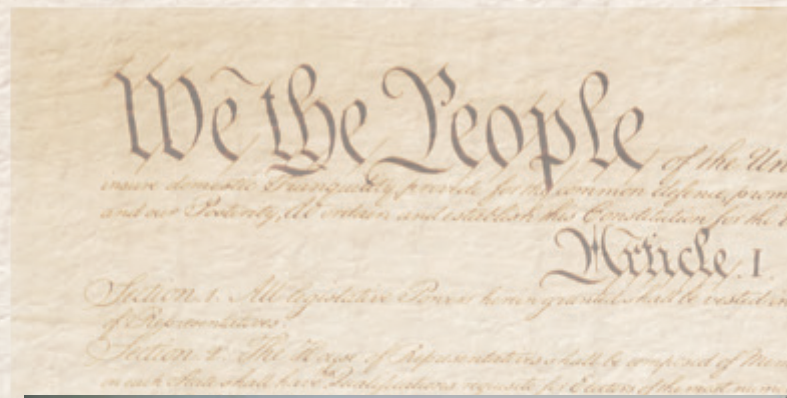 We the People of the Un
insure domestic Tranquility, provide for the common defence, prom
and our Posterity, do ordain and establish this Constitution for the
Article. I.
Section. 1. All legislative Powers herein granted shall be vested in
of Representatives.
Section. 2. The House of Representatives shall be composed of Mem
in each State shall have Qualifications requisite for Electors of the most nume